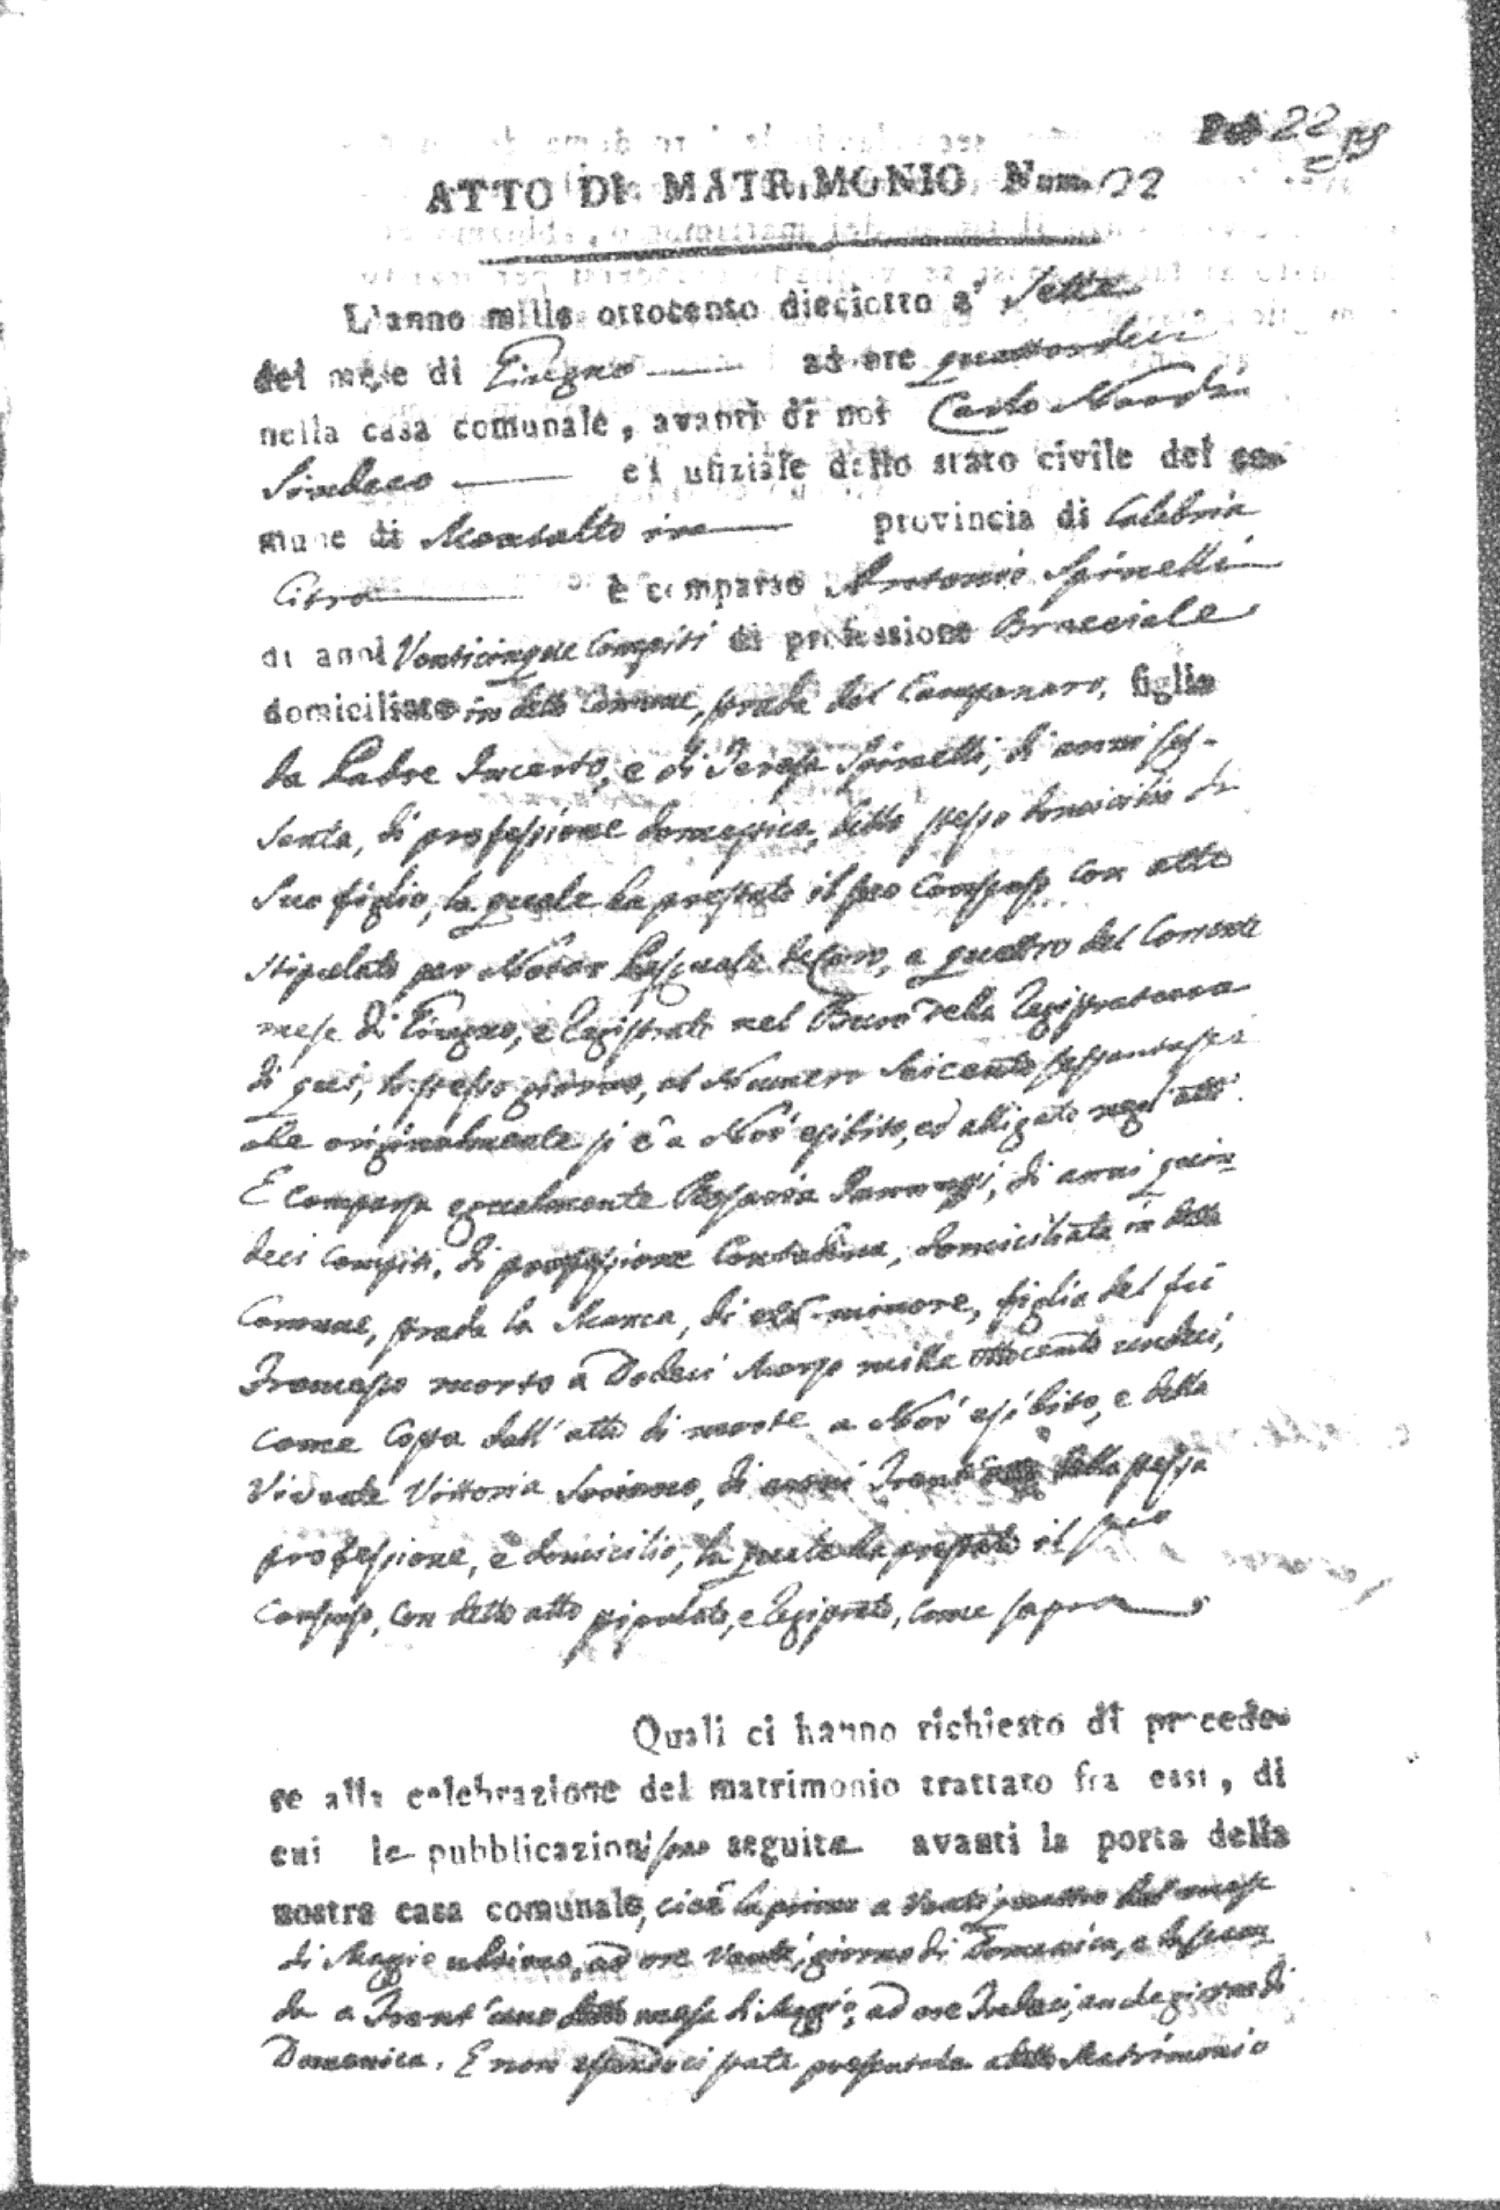 22
ATTO DI MATRIMONIO Num. 22
L'anno mille ottocento dieciotto a' Sette
del mese di Giugno ad ore quattordeci
nella casa comunale, avanti di noi Carlo Nardi
Sindaco ed ufiziale dello stato civile del co-
mune di Montalto provincia di Calabria
Citra è comparso Antonio Spinelli
di anni Venticinque Compiti di professione Bracciale
domiciliato in detto Comune, strada del Campanaro, figlio
da Padre Incerto, e di Teresa Spinelli, di anni ses-
santa, di professione domestica, dello stesso domicilio di
Suo figlio, la quale ha prestato il suo Consenso con atto
stipolato per Notar Pasquale de Caro, a quattro del Corrente
mese di Giugno, e Registrato nel Burò della Registratura
di qui, lo stesso giorno, al Numero Seicento sessantasei
che originalmente si è a Noi esibito, ed alligato negl'atti.
E comparsa egualmente Rosaria Iannuzzi, di anni quin-
deci compiti, di professione Contadina, domiciliata in detto
Comune, strada la Manca, di età minore, figlia del fù
Francesco morto a Dodeci Marzo mille ottocento undeci,
come Costa dall'atto di morte a Noi esibito, e della
Vivente Vittoria Soriano, di anni della stessa
professione, e domicilio, la quale ha prestato il suo
Consenso, con detto atto stipolato, e Registrato, come sopra
Quali ci hanno richiesto di procede-
re alla celebrazione del matrimonio trattato fra essi, di
cui le pubblicazioni sono seguite avanti la porta della
nostra casa comunale, cioè la prima a Venti quattro del mese
di Maggio ultimo, ad ore Venti, giorno di Domenica, e la secon-
da a Trent'uno detto mese di Maggio, ad ore Tredeci, anche giorno di
Domenica. E non essendoci stata presentata a detto Matrimonio